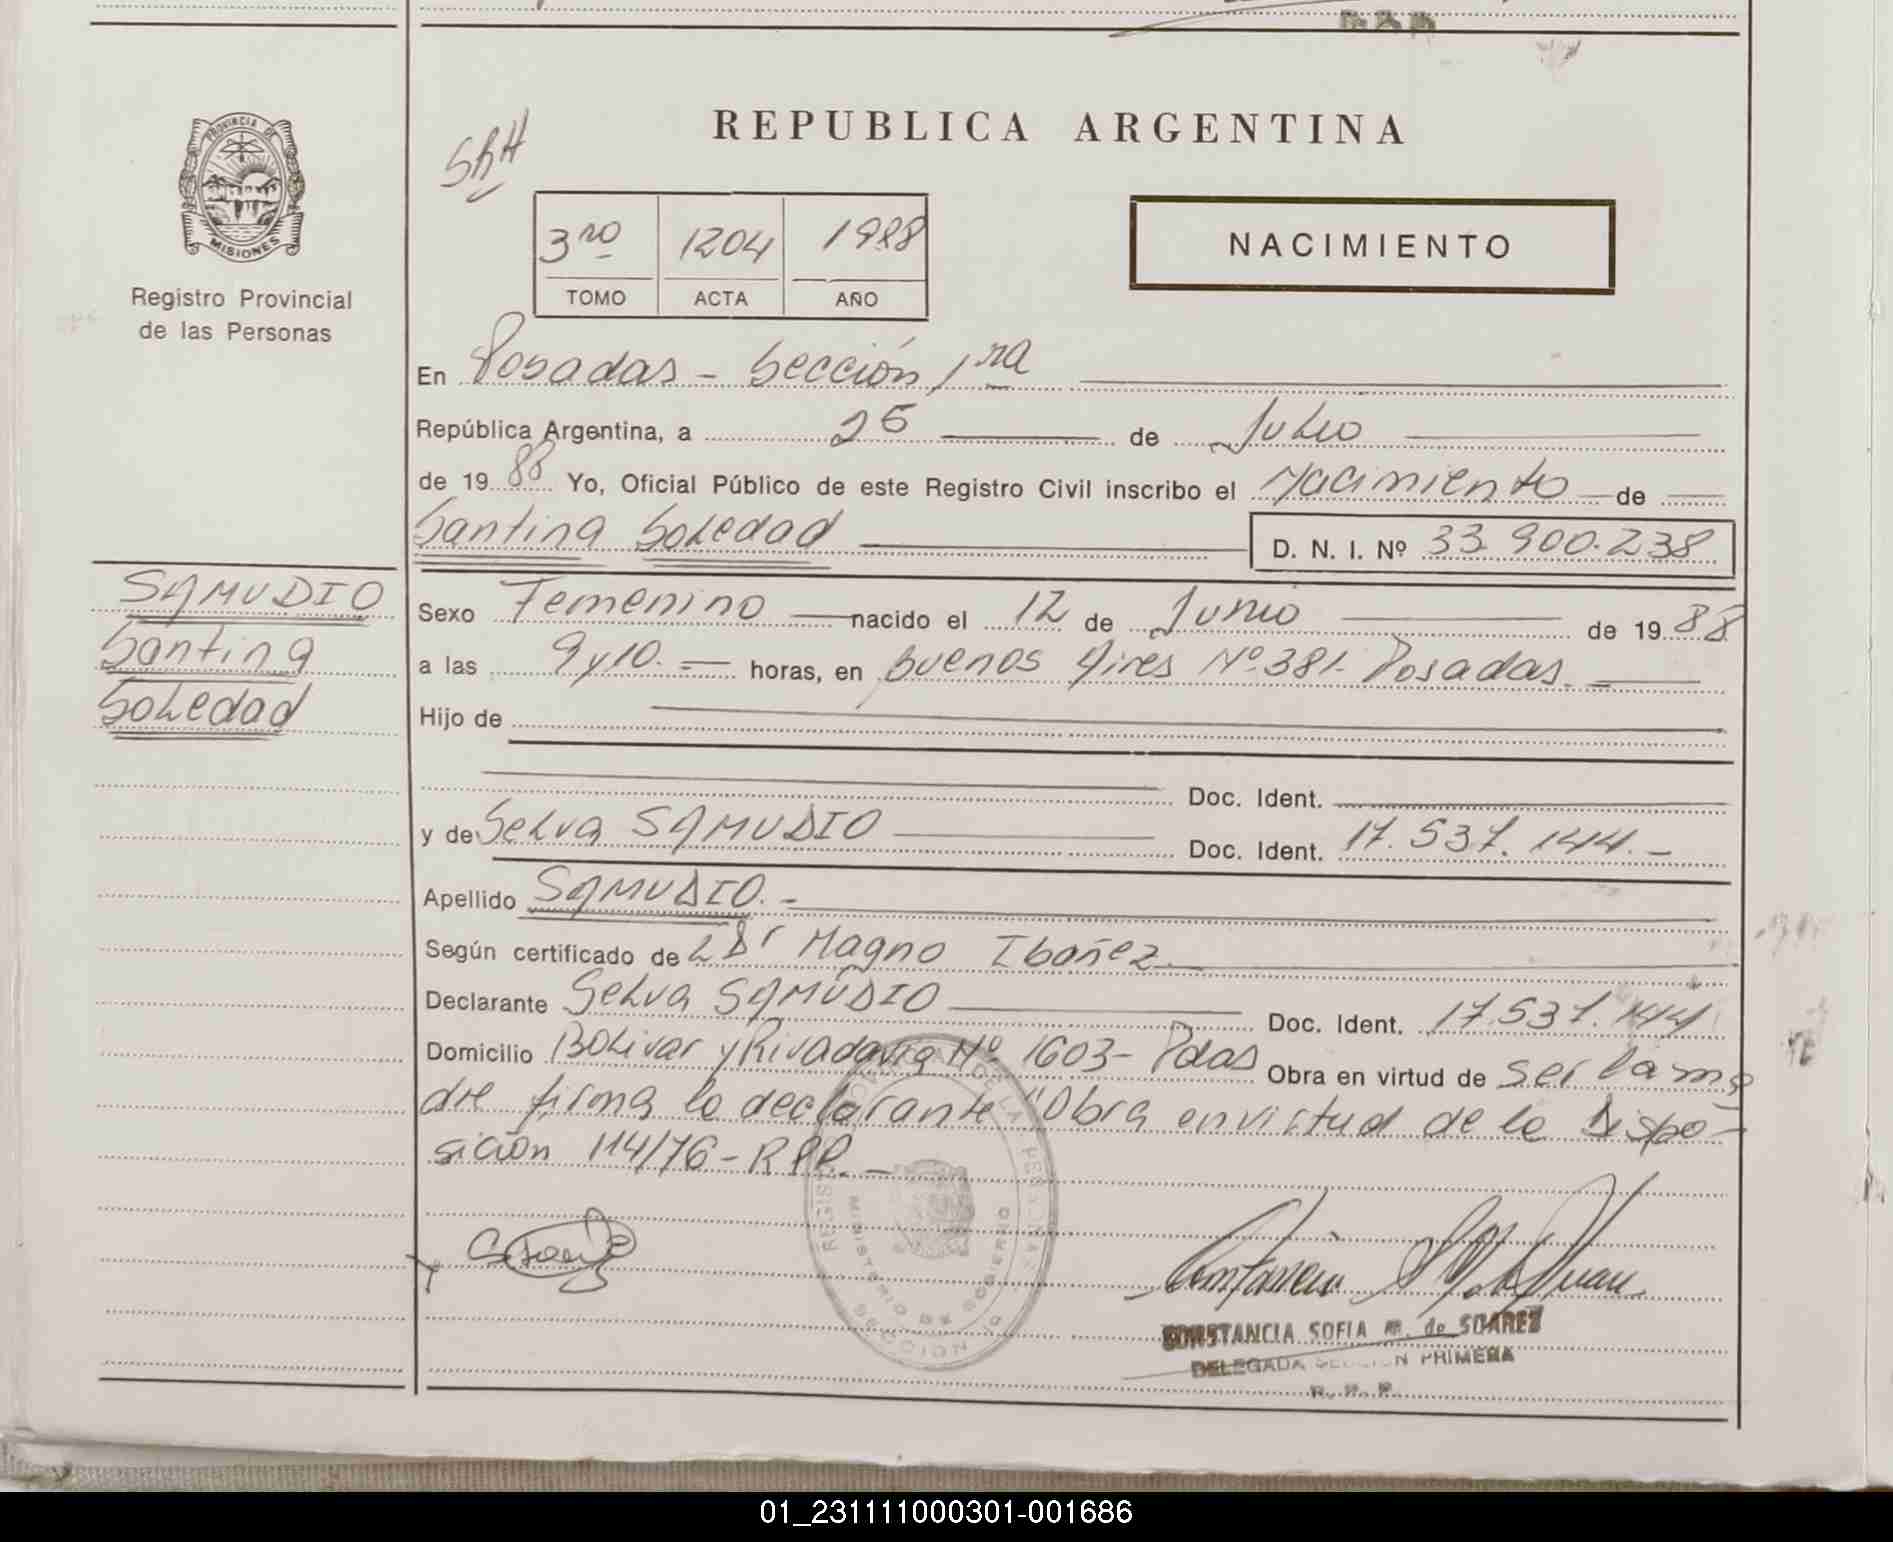 REPUBLICA ARGENTINA
PROVINCIA DE
MISIONES
Registro Provincial
de las Personas
3ro 1204 1988
TOMO ACTA AÑO
NACIMIENTO
En Posadas - Sección 1ra
República Argentina, a 25 de Julio
de 1988 Yo, Oficial Público de este Registro Civil inscribo el Nacimiento de
Santina Soledad D. N. I. Nº 33.900.238
SAMUDIO
Santina
Soledad
Sexo Femenino nacido el 12 de Junio de 1988
a las 9 y 10. horas, en Buenos Aires Nº 381- Posadas.
Hijo de
Doc. Ident.
y de Selva SAMUDIO Doc. Ident. 17.537.144.-
Apellido SAMUDIO.-
Según certificado de Dr Magno Ibañez
Declarante Selva SAMUDIO Doc. Ident. 17.537.144
Domicilio Bolivar y Rivadavia Nº 1603- Pdas Obra en virtud de ser la ma
dre firma la declarante "Obra en virtud de la Dispo-
sición 114/76-RPP.-
CONSTANCIA SOFIA M. de SUAREZ
DELEGADA SECCION PRIMERA
R. P. P.
MINISTERIO DE GOBIERNO
01_231111000301-001686